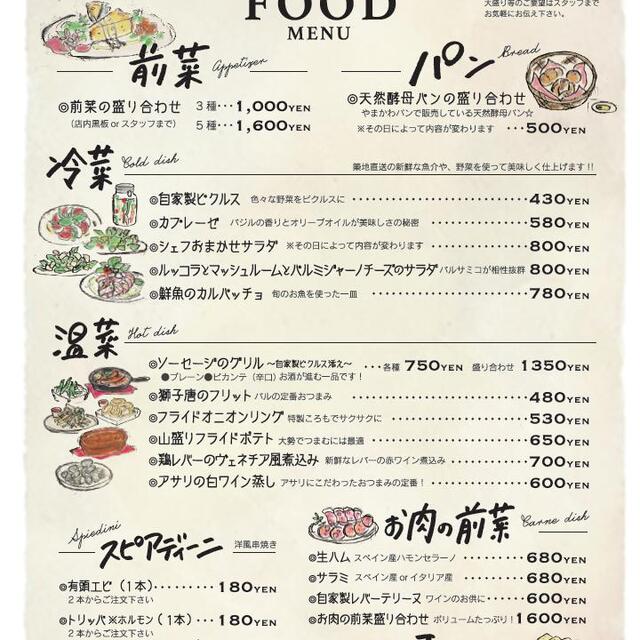 FOOD
MENU
大盛り等のご要望はスタッフまで
お気軽にお伝え下さい。
前菜 Appetizer
◎前菜の盛り合わせ 3種・・・1,000YEN
（店内黒板 or スタッフまで） 5種・・・1,600YEN
パン Bread
◎天然酵母パンの盛り合わせ
やまかわパンで販売している天然酵母パン☆
※その日によって内容が変わります ・・・500YEN
冷菜 Cold dish
築地直送の新鮮な魚介や、野菜を使って美味しく仕上げます!!
◎自家製ピクルス 色々な野菜をピクルスに 430YEN
◎カプレーゼ バジルの香りとオリーブオイルが美味しさの秘密 580YEN
◎シェフおまかせサラダ ※その日によって内容が変わります 800YEN
◎ルッコラとマッシュルームとパルミジャーノチーズのサラダ バルサミコが相性抜群 800YEN
◎鮮魚のカルパッチョ 旬のお魚を使った一皿 780YEN
温菜 Hot dish
◎ソーセージのグリル 〜自家製ピクルス添え〜 ・・・各種 750YEN 盛り合わせ 1350YEN
●プレーン●ピカンテ（辛口）お酒が進む一品です！
◎獅子唐のフリット バルの定番おつまみ 480YEN
◎フライドオニオンリング 特製ころもでサクサクに 530YEN
◎山盛りフライドポテト 大勢でつまむには最適 650YEN
◎鶏レバーのヴェネチア風煮込み 新鮮なレバーの赤ワイン煮込み 700YEN
◎アサリの白ワイン蒸し アサリにこだわったおつまみの定番！ 600YEN
Spiedini
スピアディーニ 洋風串焼き
◎有頭エビ（1本） 180YEN
2本からご注文下さい
◎トリッパ※ホルモン（1本） 180YEN
2本からご注文下さい
お肉の前菜 Carne dish
◎生ハム スペイン産ハモンセラーノ 680YEN
◎サラミ スペイン産 or イタリア産 680YEN
◎自家製レバーテリーヌ ワインのお供に 600YEN
◎お肉の前菜盛り合わせ ボリュームたっぷり！1600YEN